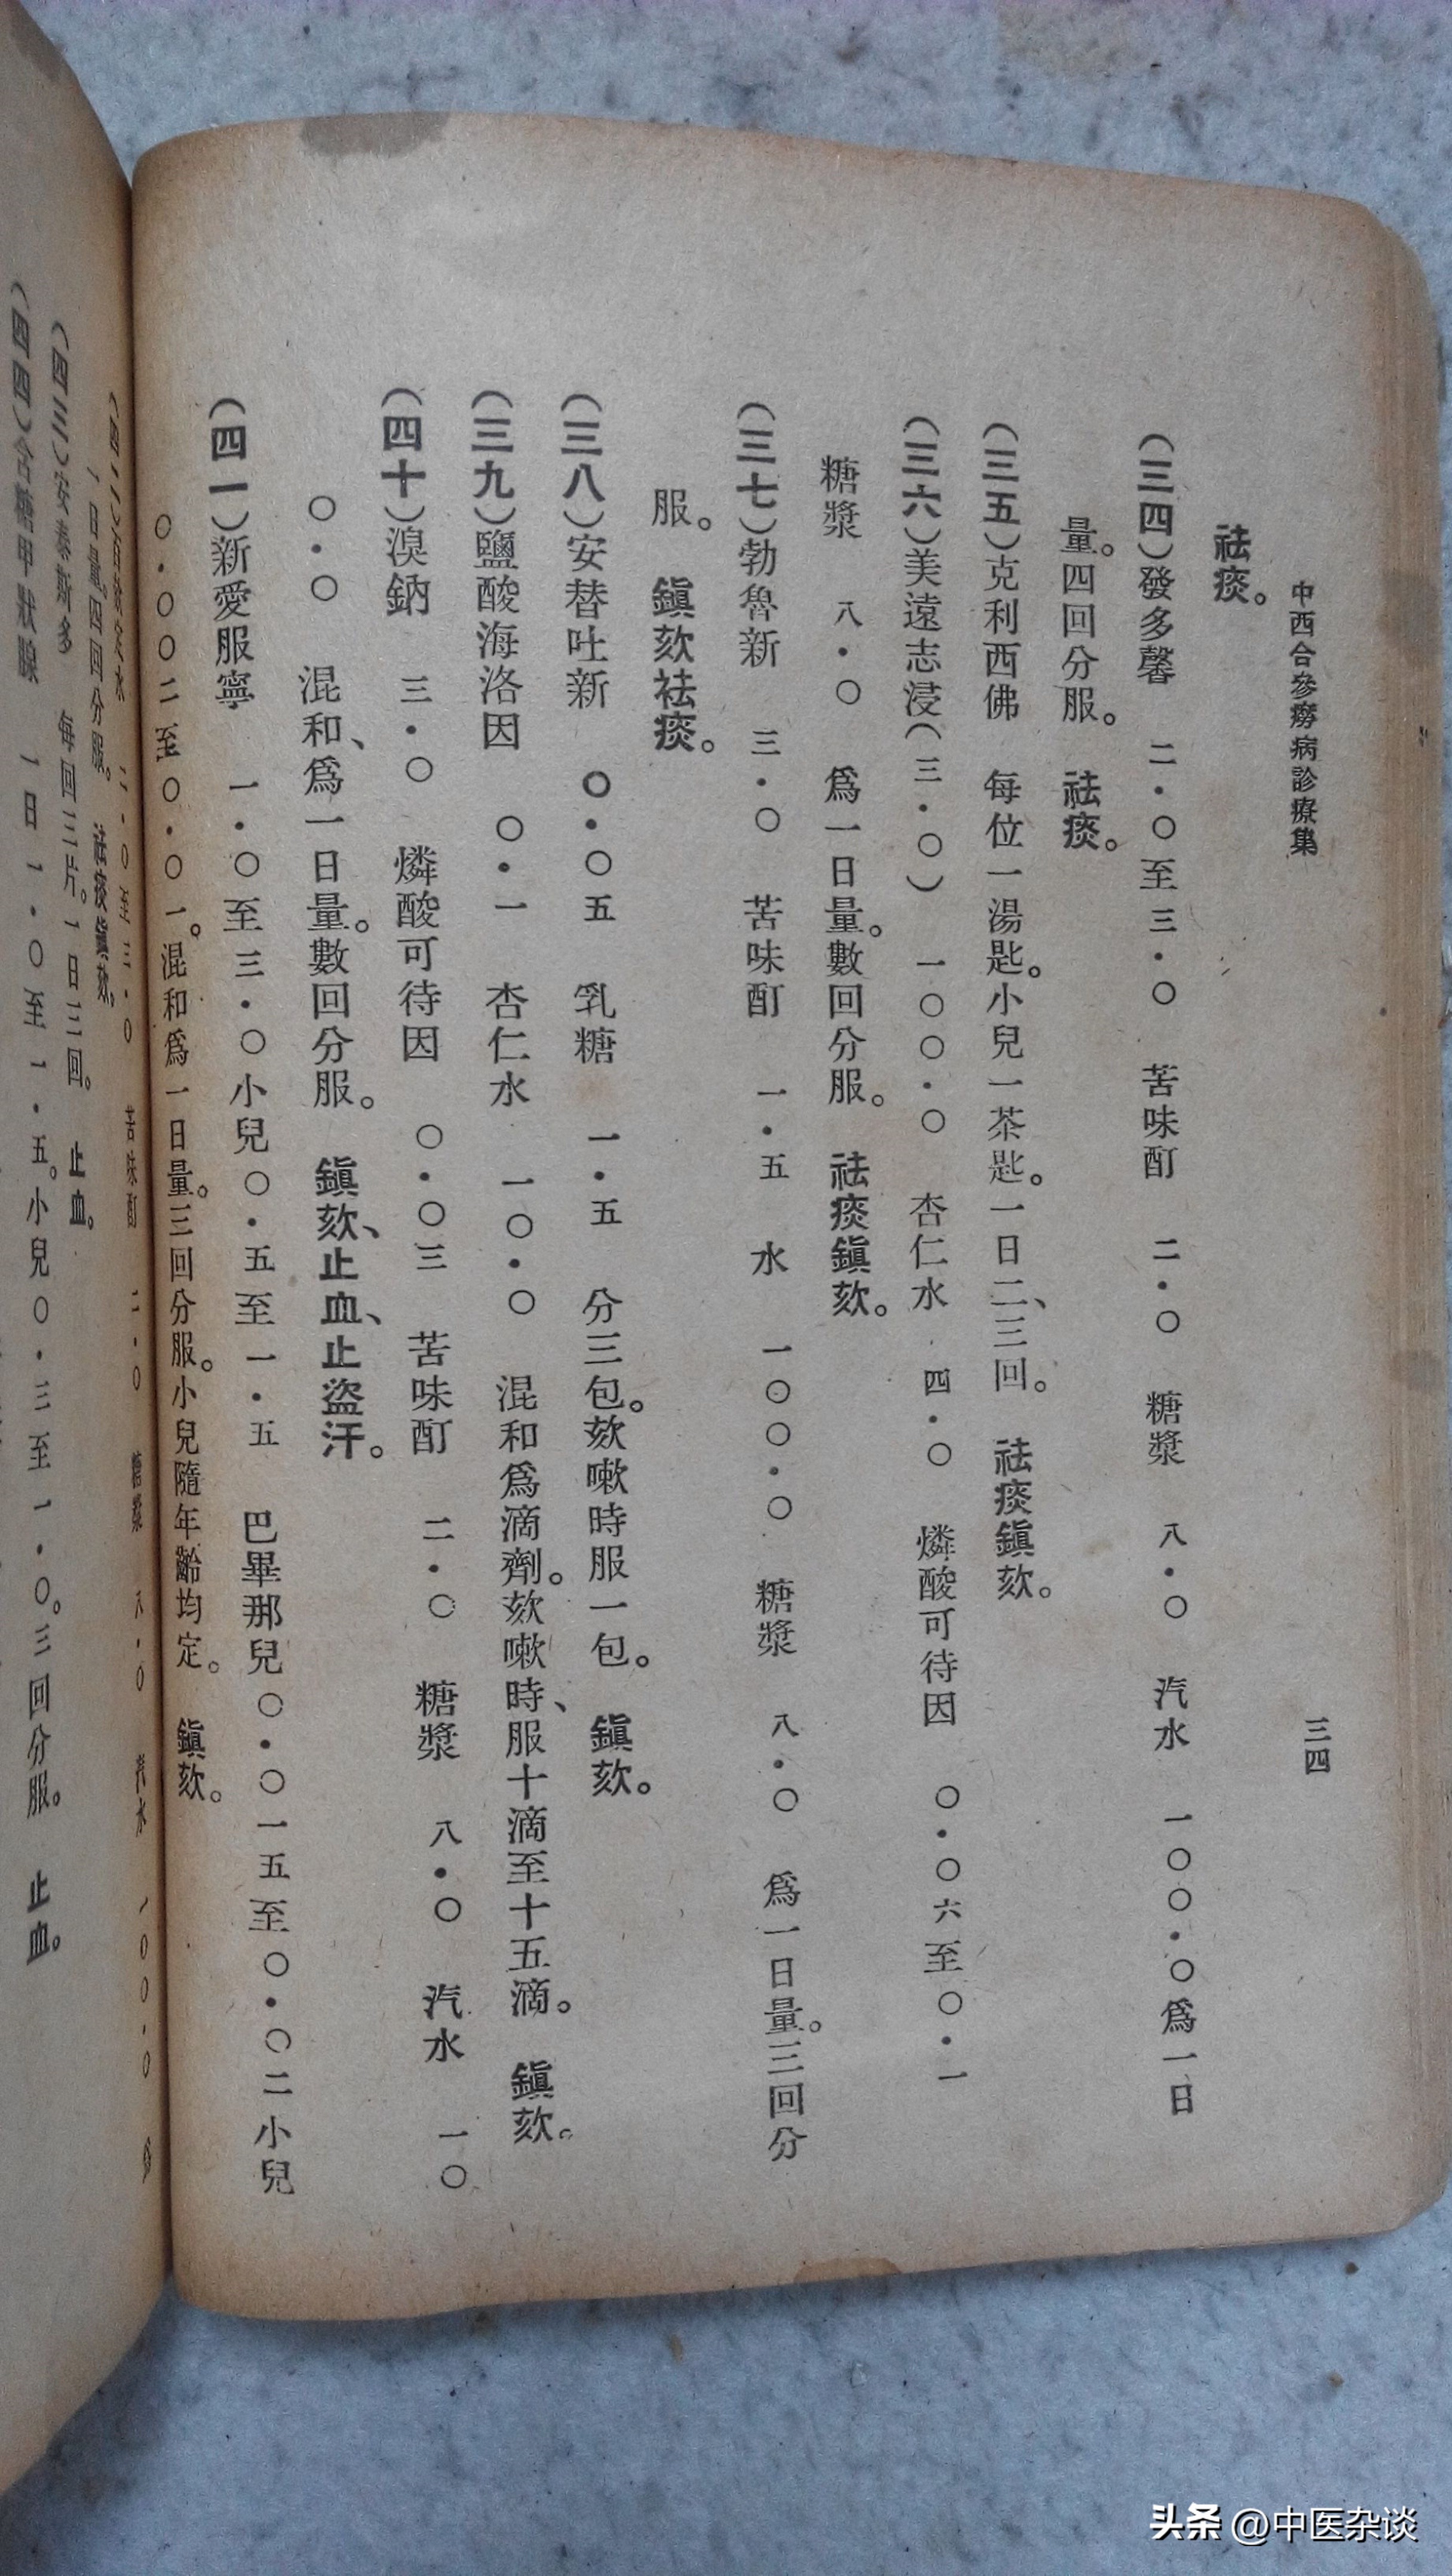 中西合參癆病診療集 三四
祛痰。
(三四)發多馨 二·〇至三·〇 苦味酊 二·〇 糖漿 八·〇 汽水 一〇〇·〇爲一日
量。四回分服。 祛痰。
(三五)克利西佛 每位一湯匙。小兒一茶匙。一日二、三回。 祛痰鎭欬。
(三六)美遠志浸(三·〇) 一〇〇·〇 杏仁水 四·〇 燐酸可待因 〇·〇六至〇·一
糖漿 八·〇 爲一日量。數回分服。 祛痰鎭欬。
(三七)勃魯新 三·〇 苦味酊 一·五 水 一〇〇·〇 糖漿 八·〇 爲一日量。三回分
服。 鎭欬祛痰。
(三八)安替吐新 〇·〇五 乳糖 一·五 分三包。欬嗽時服一包。 鎭欬。
(三九)鹽酸海洛因 〇·一 杏仁水 一〇·〇 混和爲滴劑。欬嗽時、服十滴至十五滴。 鎭欬。
(四十)溴鈉 三·〇 燐酸可待因 〇·〇三 苦味酊 二·〇 糖漿 八·〇 汽水 一〇
〇·〇 混和、爲一日量。數回分服。 鎭欬、止血、止盜汗。
(四一)新愛服寧 一·〇至三·〇小兒〇·五至一·五 巴畢那兒〇·〇一五至〇·〇二小兒
〇·〇〇二至〇·〇一。混和爲一日量。三回分服。小兒隨年齡均定。 鎭欬。
二·〇至三·〇 苦味酊 二·〇 糖漿 八·〇 汽水 一〇〇·〇
一日量。四回分服。 祛痰鎭欬。
(四三)安泰斯多 每回三片。一日三回。 止血。
(四四)含糖甲狀腺 一日一·〇至一·五。小兒〇·三至一·〇。三回分服。 止血。
头条 @中医杂谈